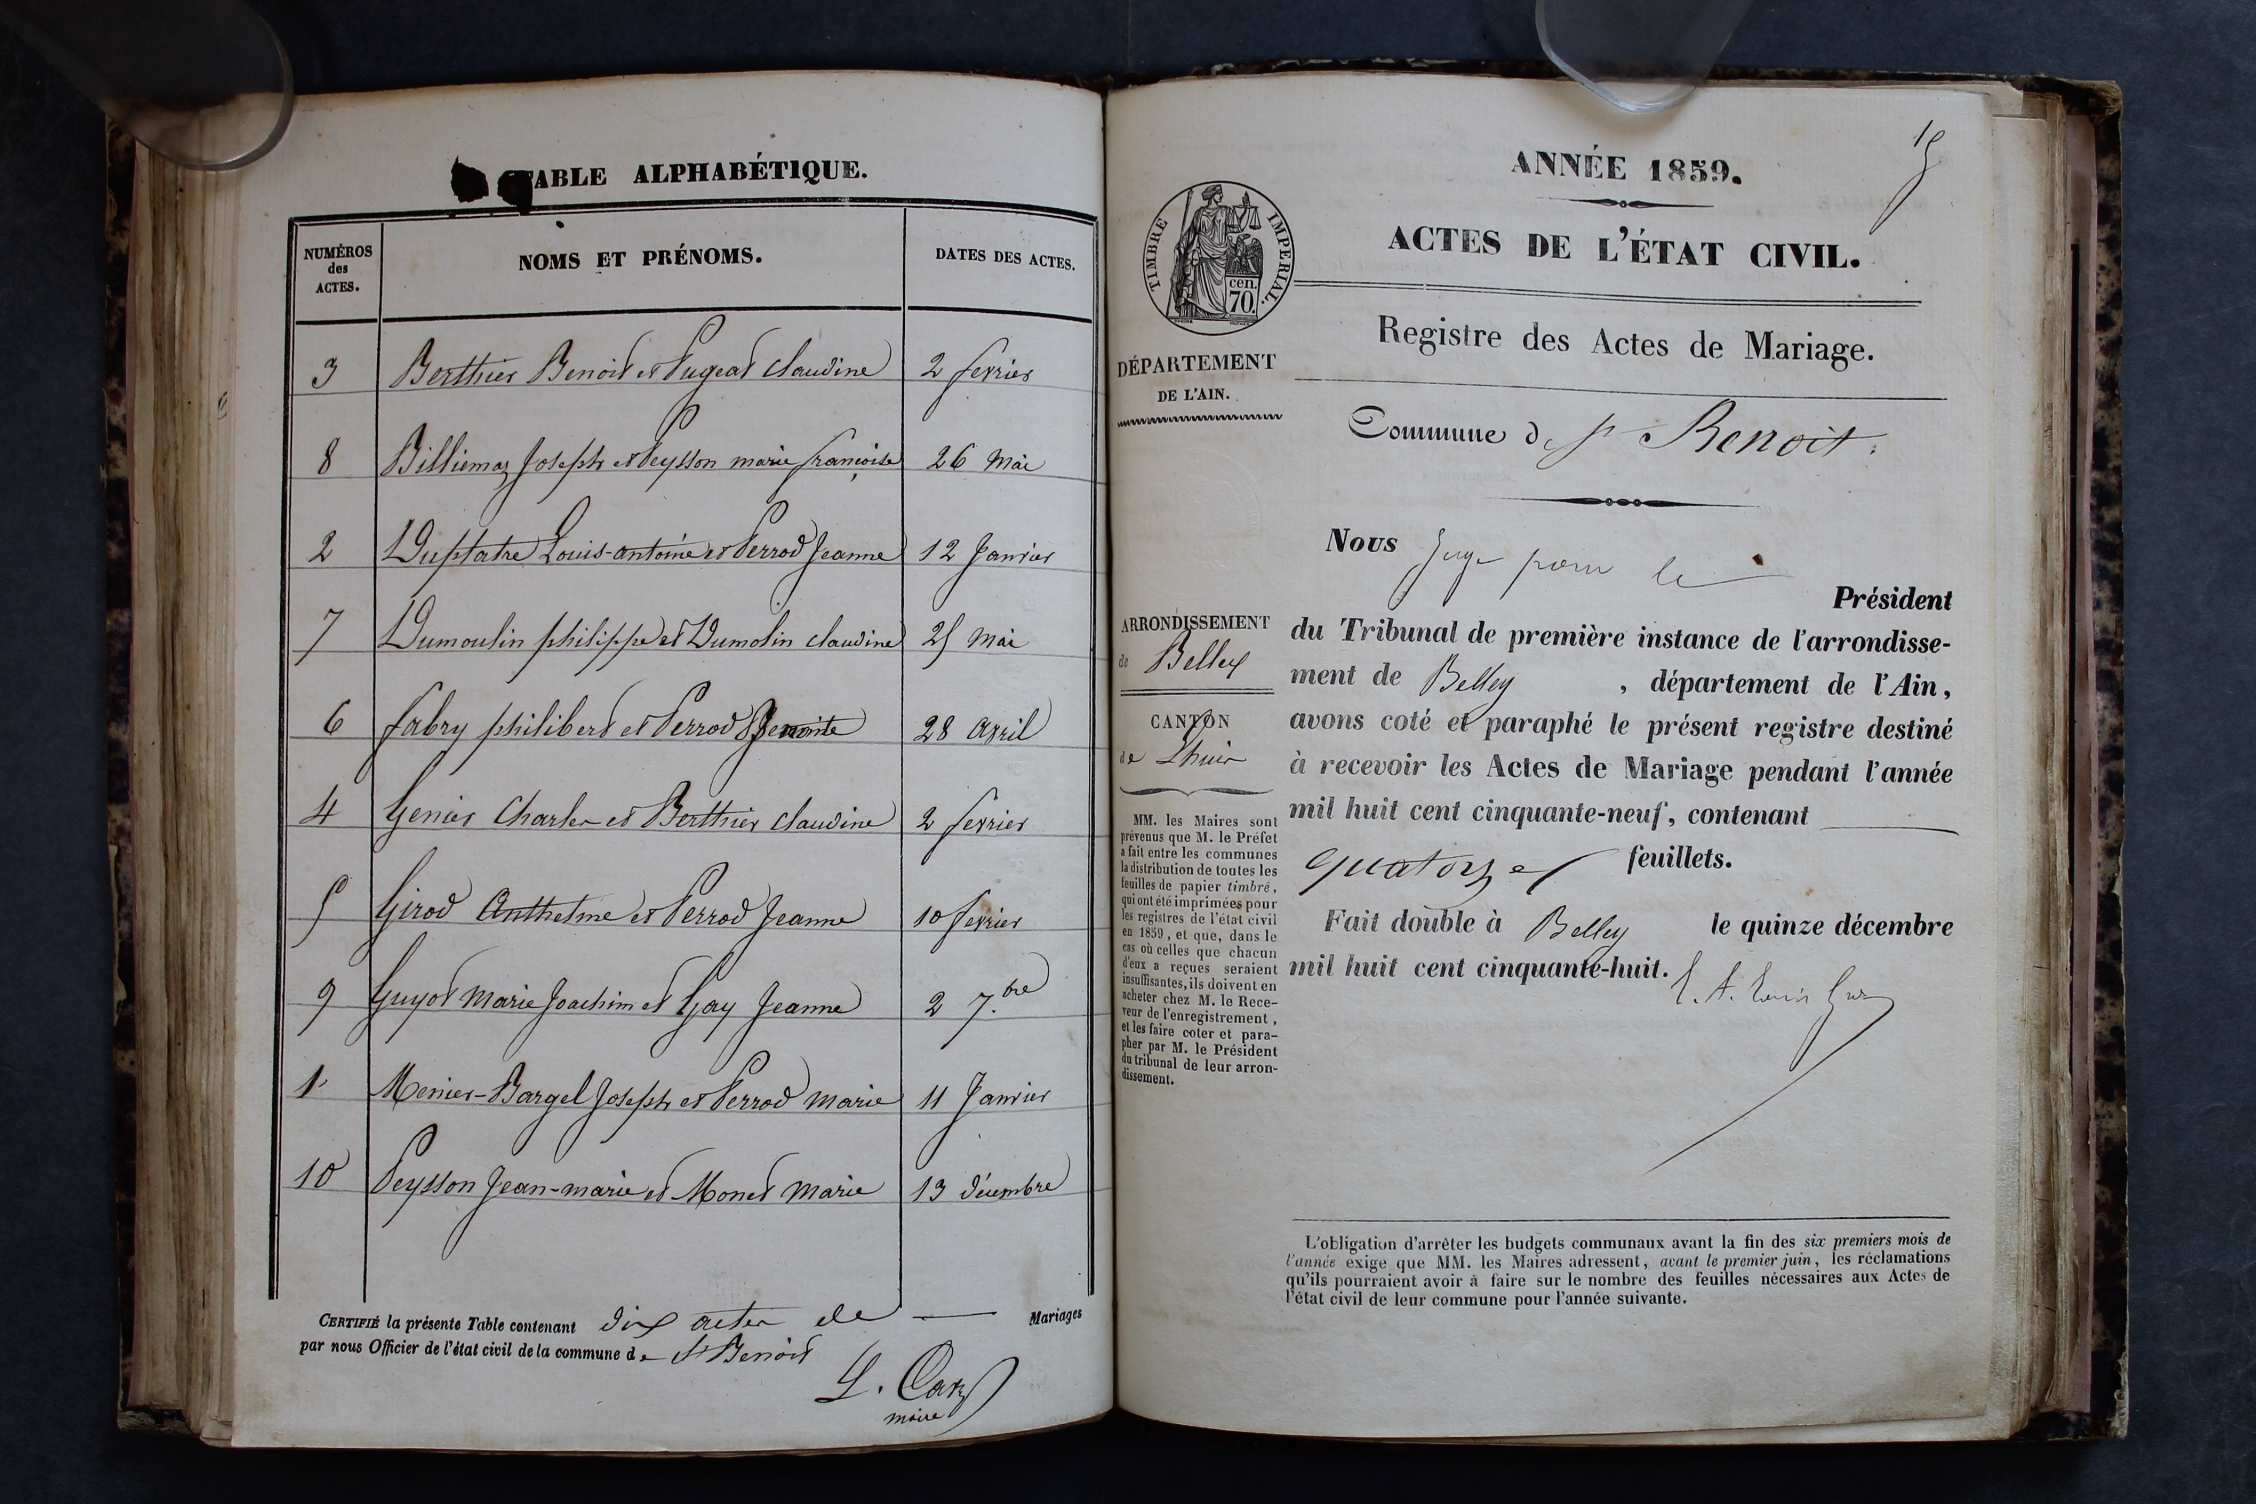 TABLE ALPHABÉTIQUE.
NUMÉROS
des
ACTES.
NOMS ET PRÉNOMS.
DATES DES ACTES.
3 Berthier Benoit et Pugeat Claudine 2 fevrier
8 Billiemaz Joseph et Peysson marie françoise 26 Mai
2 Duplatre Louis-antoine et Perrod Jeanne 12 Janvier
7 Dumoulin philippe et Dumolin claudine 25 Mai
6 fabry philibert et Perrod Benoite 28 avril
4 Genier Charles et Berthier claudine 2 fevrier
5 Girod Anthelme et Perrod Jeanne 10 fevrier
9 Guyot Marie Joachim et Gay Jeanne 2 7.bre
1 Menier-Bargel Joseph et Perrod marie 11 Janvier
10 Peysson Jean-marie et Monet Marie 13 décembre
CERTIFIÉ la présente Table contenant dix actes de Mariages
par nous Officier de l'état civil de la commune de St Benoit
maire
15
ANNÉE 1859.
ACTES DE L'ÉTAT CIVIL.
TIMBRE IMPERIAL.
cen.
70.
Registre des Actes de Mariage.
DÉPARTEMENT
DE L'AIN.
Commune de St Benoit.
Nous Juge pour le
Président
du Tribunal de première instance de l'arrondisse-
ment de Belley, département de l'Ain,
avons coté et paraphé le présent registre destiné
à recevoir les Actes de Mariage pendant l'année
mil huit cent cinquante-neuf, contenant
quatorze feuillets.
Fait double à Belley le quinze décembre
mil huit cent cinquante-huit.
ARRONDISSEMENT
de Belley
CANTON
de Lhuis
MM. les Maires sont
prévenus que M. le Préfet
a fait entre les communes
la distribution de toutes les
feuilles de papier timbré,
qui ont été imprimées pour
les registres de l'état civil
en 1859, et que, dans le
cas où celles que chacun
d'eux a reçues seraient
insuffisantes, ils doivent en
acheter chez M. le Rece-
veur de l'enregistrement,
et les faire coter et para-
pher par M. le Président
du tribunal de leur arron-
dissement.
L'obligation d'arrêter les budgets communaux avant la fin des six premiers mois de
l'année exige que MM. les Maires adressent, avant le premier juin, les réclamations
qu'ils pourraient avoir à faire sur le nombre des feuilles nécessaires aux Actes de
l'état civil de leur commune pour l'année suivante.